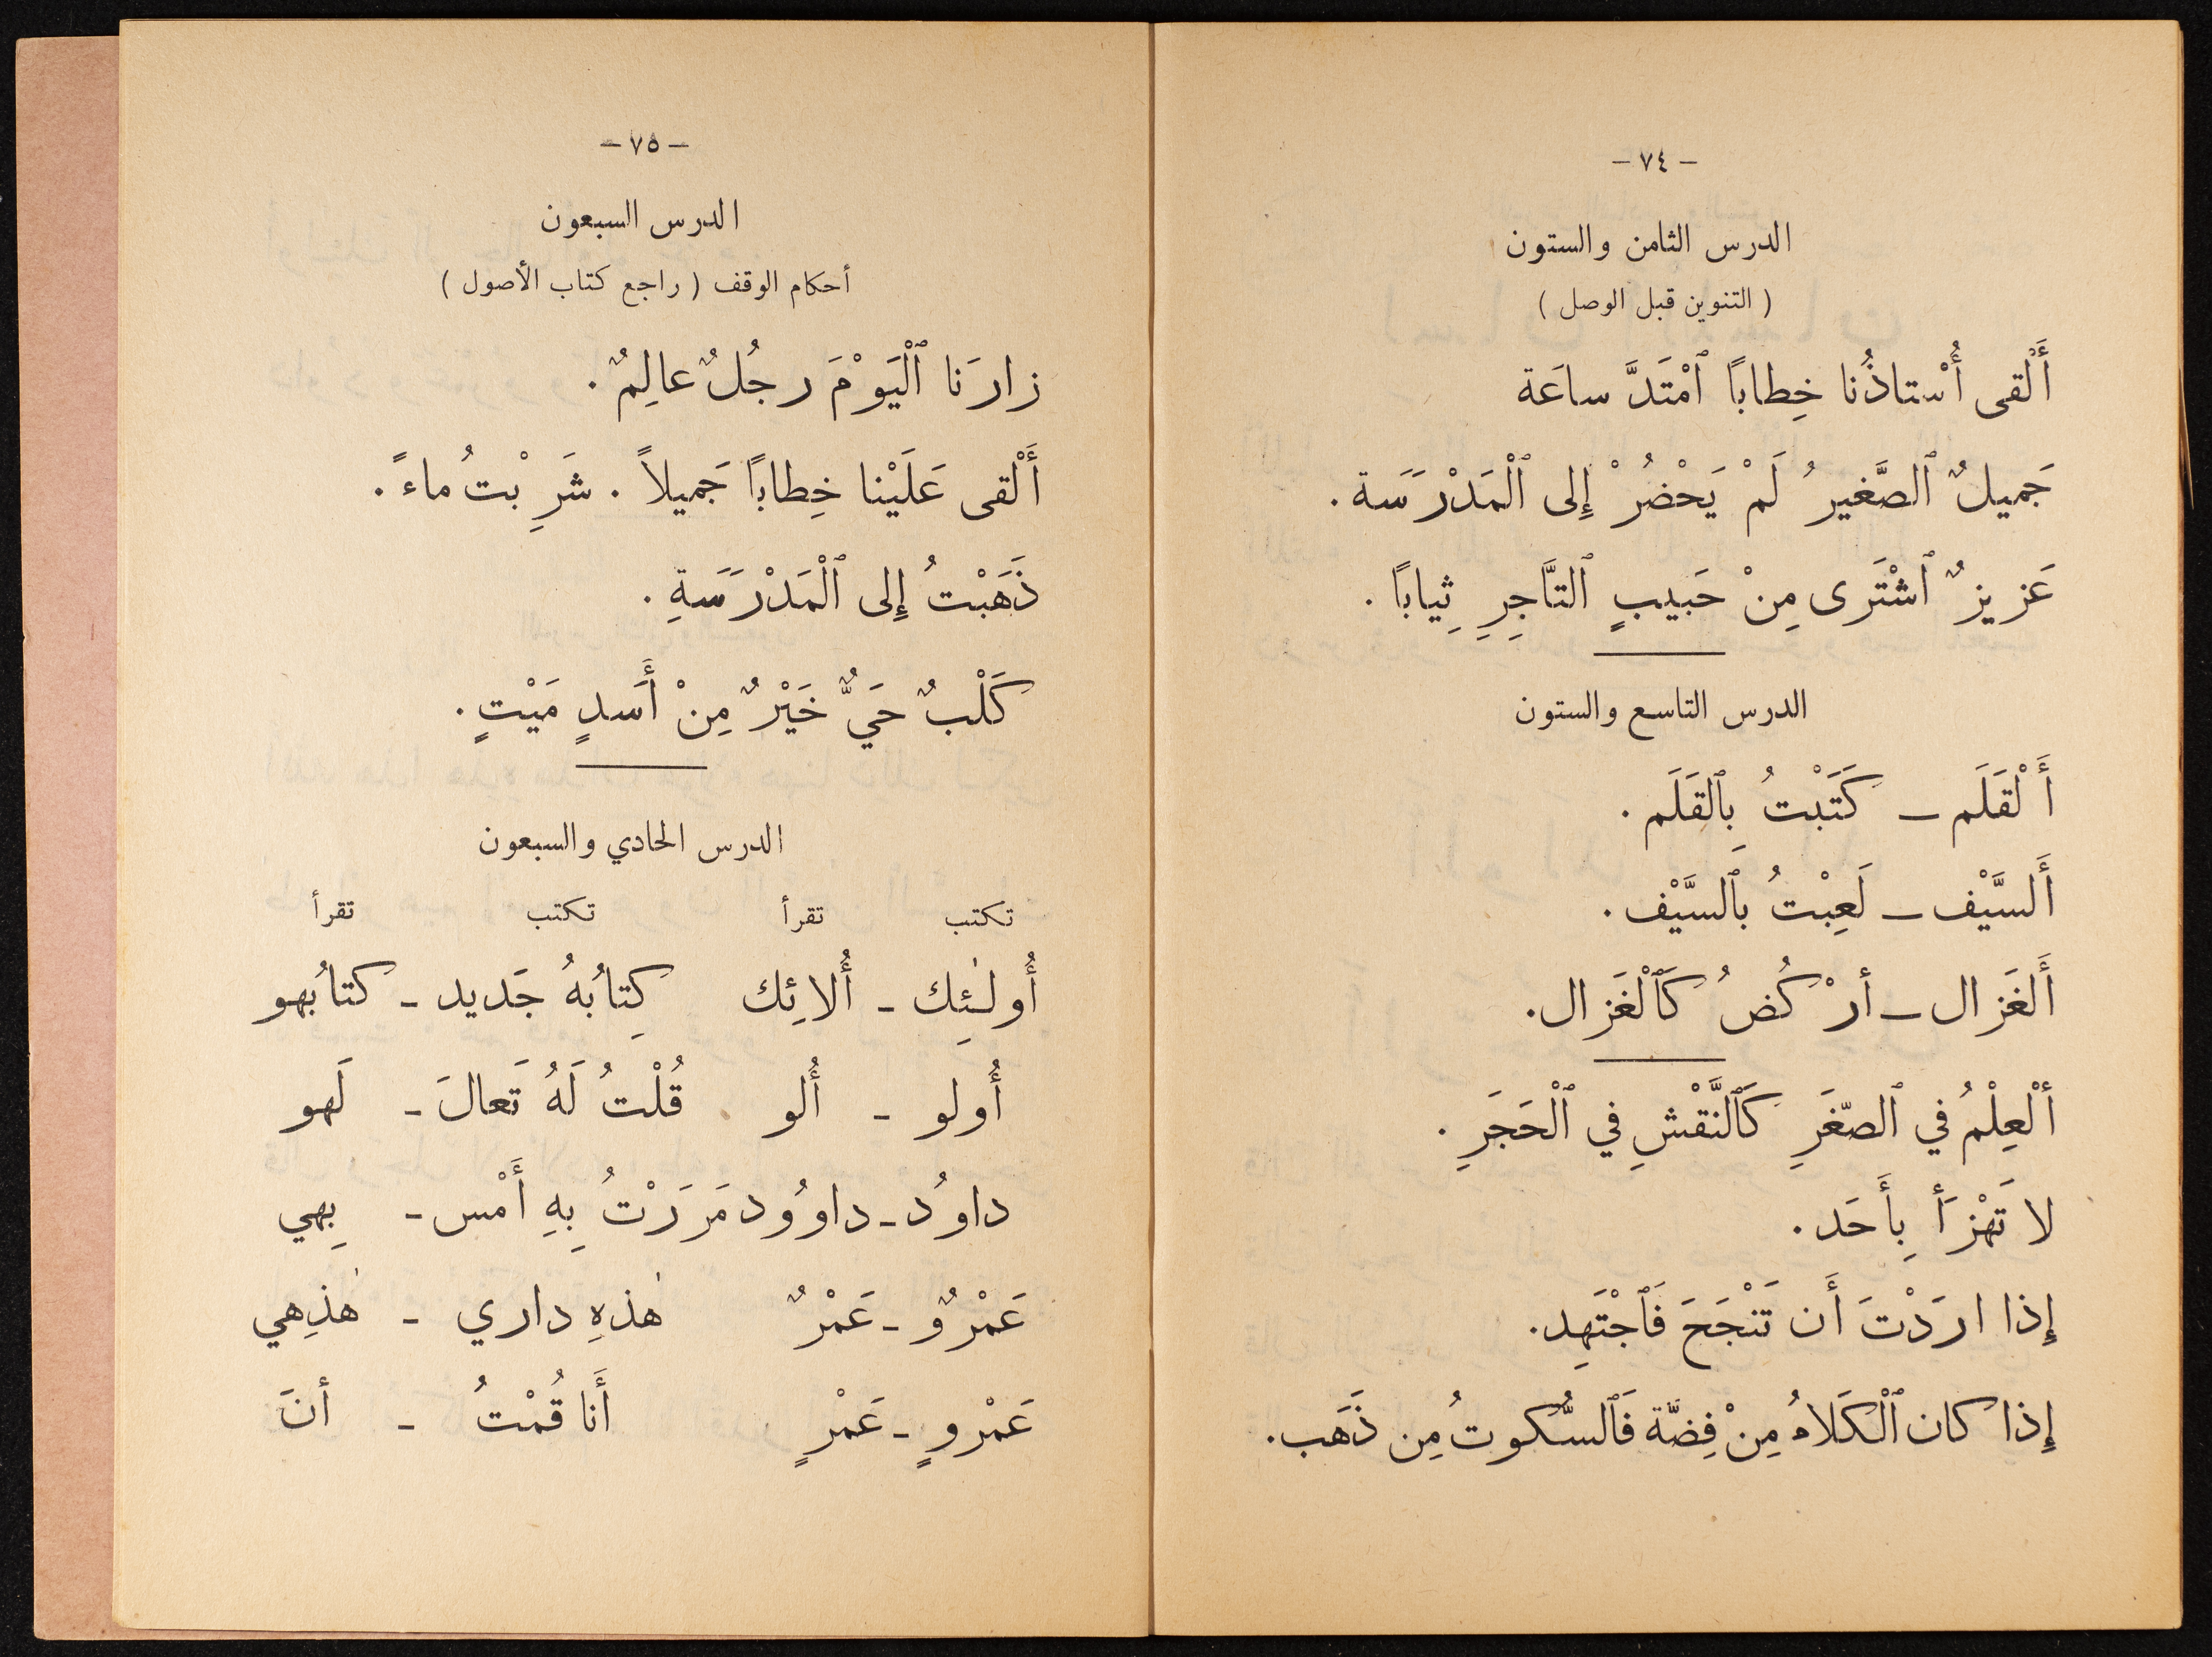 – ٧٤ –
الدرس الثامن والستون
( التنوين قبل الوصل )
أَلْقى أُسْتاذُنا خِطاباً ٱمْتَدَّ ساعَة
جَميلٌ ٱلصَّغيرُ لَمْ يَحْضُرْ إِلى ٱلْمَدْرَسَة .
عَزيزٌ ٱشْتَرى مِنْ حَبيبٍ ٱلتَّاجِرِ ثِياباً .
الدرس التاسع والستون
أَلْقَلَم – كَتَبْتُ بِٱلقَلَم .
أَلسَّيْف – لَعِبْتُ بِٱلسَّيْف .
أَلغَزال – أرْكُضُ كَٱلْغَزال .
أَلْعِلْمُ في ٱلصّغَرِ كَٱلنَّقْشِ في ٱلْحَجَرِ .
لا تَهْزَأ بِأَحَد .
إِذا ارَدْتَ أَن تَنْجَحَ فَٱجْتَهِد .
إِذا كان ٱلْكَلامُ مِنْ فِضّة فَٱلسُّكوتُ مِن ذَهَب .
– ٧٥ –
الدرس السبعون
أحكام الوقف ( راجع كتاب الأصول )
زارَنا ٱلْيَوْمَ رجُلٌ عالِمٌ .
أَلْقى عَلَيْنا خِطاباً جَميلاً . شَرِبْتُ ماءً .
ذَهَبْتُ إِلى ٱلْمَدْرَسَةِ .
كَلْبٌ حَيٌّ خَيْرٌ مِنْ أَسَدٍ مَيْتٍ .
الدرس الحادي والسبعون
تكتب تقرأ تكتب تقرأ
أُولٰئِك – أُلائِك كِتابُهُ جَديد – كتابُهو
أُولو – أُلو قُلْتُ لَهُ تَعالَ – لَهو
داوُد – داوُود مَرَرْتُ بِهِ أَمْس – بِهي
عَمْرٌو – عَمْرٌ هٰذهِ داري – هٰذِهي
عَمْروٍ – عَمْرٍ أَنا قُمْتُ – أنَ